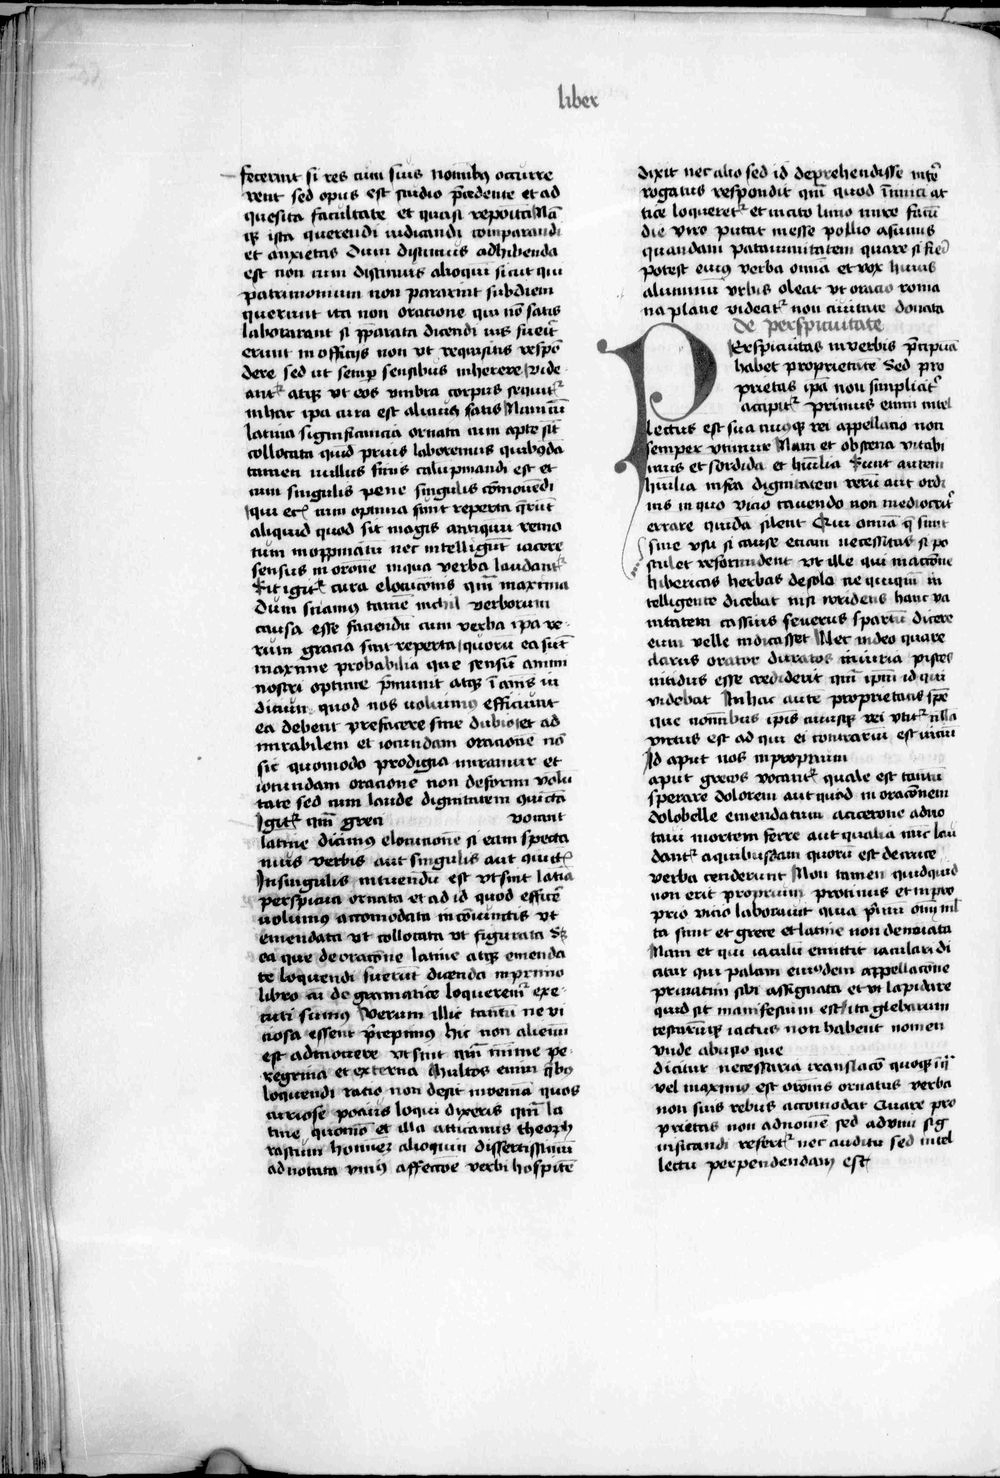 liber
fecerint si res cum suis nominibꝰ occurre
rent sed opus est studio p̄cedente et ad
quesita facultate et quasi reposita Nā
iſta querendi iudicandi comparandi
et anxietas dum discimus adhibenda
est non cum dicimus alioqui sicut qui
patrimonium non pararint subdiem
querunt ita non oratione qui nō satis
laborarant si p̄parata dicendi uis fuerit
erunt in officiis non vt requisitis respō
dere sed ut semp sensibus inherere vide
ant atqꝫ vt eos vmbra corpus sequit
in hac ipa cura est aliquis satis Nam cū
latina significancia ornata cum apte sīt
collocata quid prius laboremus quibꝰdā
tamen nullus finis calūpniandi est et
cum singulis pene singulis cōmovendi
qui etꝭ cum optima sint reperta querūt
aliquid quod sit magis antiquū remo
tum inoppinatū nec intelligunt iacere
sensus in or̄one in qua verba laudant
Sit igit cura elocucionis qm̄ maxima
dum sciamꝰ tamē nichil verborum
causa esse faciendū cum verba ipa re
rum gracia sint reperta quorū ea sūt
maxime probabilia que sensum animi
nostri optime p̄munt atqꝫ ī animis iu
dicum quod nos volumus efficiunt
ea debent prefacere sine dubio et ad
mirabilem et iocundam oracionē nō
sic quomodo prodigia miramur et
iocundam oracione non deformi volu
tate sed cum laude dignitatem quicta
Igit qm̄ greci vocant
latine dicimus elocucionē si eam specta
mus verbis aut singulis aut
In singulis intuendū est vt sint latia
perspicua ornata et ad id quod efficē
volumꝰ accomodata in coniunctis vt
emendata vt collocata vt figurata Sꝫ
ea que de oracōne latine atqꝫ emenda
te loquendi fuerūt dicenda in primo
libro cū de gramatice loqueremur exe
cuti sumus Verum illic tantū ne vi
ciosa essent p̄cepimꝰ hic non alienū
est admovere vt sint qm̄ mīme pe
regrina et externa Multos enim
loquendi racio non desit invenia quos
curiose pocius loqui dixeris qm̄ la
tine quomō et illa atticanus theoph
rastum hominez alioquin disertissimū
adnotata vnius affectōe verbi hospitē
dixit nec alio sed id deprehendisse inte
rogatus respondit qm̄ quod nimiū at
tice loqueret et in tito livio mire facū
die viro putat inesse pollio asinius
quandam patavinitatem quare si fieri
potest eciam verba omnia et vox huius
alumnū vrbis oleat vt oracio roma
na plane videat non civitate donata
de perspicuitate
Perspicuitas in verbis p̄cipuā
habet proprietatē Sed pro
prietas ipa non simplicit
accipit primus enim intel
lectus est sua cuiusqꝫ rei appellatio non
semper vtimur Nam et obscena vitabi
mus et sordida et humilia Sunt autem
humilia infra dignitatem rerū aut ordi
nis in quo vicio cavendo non mediocrit
errare quidā silent Qui omīa q̄ sunt
sine vsu si cause eciam necessitas si po
stulet reformident vt ille qui in accōne
hibericas herbas de solo ne quiqm̄ in
telligente dicebat nisi irridens hanc va
nitatem cassius severus spartū dicere
eum velle indicasset Nec video quare
clarus orator duratos muria pisces
nitidius esse crediderit qm̄ ipm̄ id qui
videbat In hac autē proprietatis spē
que nominibus ipīs cuiusqꝫ rei vtitur nlla
virtus est ad qui ei contrariū est viciū
Id aput nos improprium
aput grecos vocant quale est tantū
sperare dolorem aut quod in oracōnem
dolobelle emendatum a cicerone adno
tavi mortem ferre aut qualia nūc lau
dant a quibusdam quorū est de cruce
verba cenderunt Non tamen quidquid
non erit proprium protinus et inpro
prio vicio laborauit quia p̄mū omnium ml
ta sunt et grece et latine non denōīata
Nam et qui iaculū emittit iaculari di
citur qui palam eiusdem appellacōne
privatim sibi assignata et vt lapidare
quid sit manifestum est ita glebarum
testarūqꝫ iactus non habent nomen
vnde abusio que
dicitur necessaria translacō quoqꝫ
vel maximꝰ est or̄onis ornatus verba
non suis rebus accomodat Quare pro
prietas non ad nomē sed ad vim sig
nificandi refert nec auditu sed intel
lectu perpendendam est